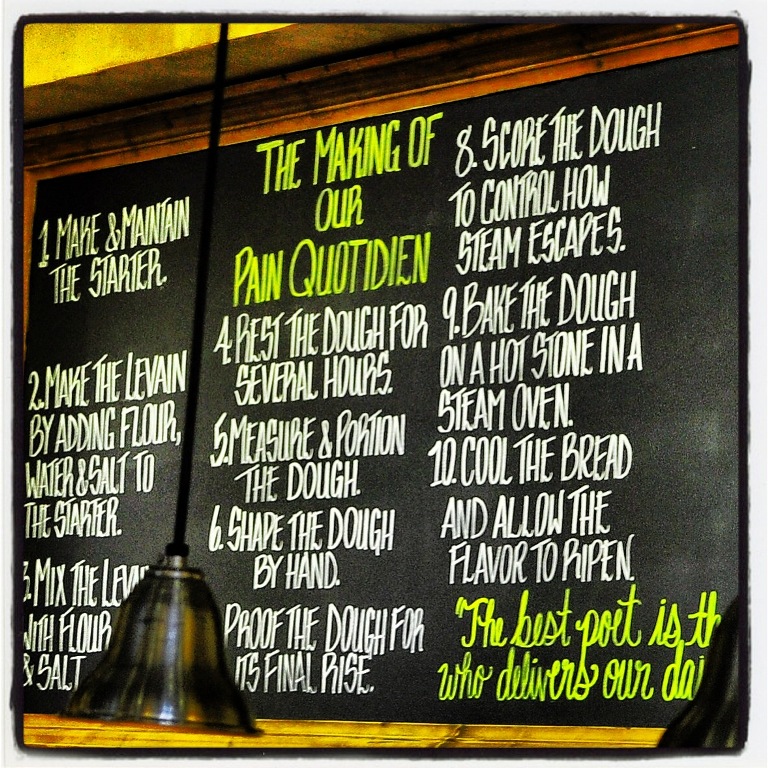 THE MAKING OF
OUR
PAIN QUOTIDIEN
1. MAKE & MAINTAIN
THE STARTER.
2. MAKE THE LEVAIN
BY ADDING FLOUR,
WATER & SALT TO
THE STARTER.
3. MIX THE
WITH FLOUR
& SALT
4. REST THE DOUGH FOR
SEVERAL HOURS.
5. MEASURE & PORTION
THE DOUGH.
6. SHAPE THE DOUGH
BY HAND.
PROOF THE DOUGH FOR
ITS FINAL RISE.
8. SCORE THE DOUGH
TO CONTROL HOW
STEAM ESCAPES.
9. BAKE THE DOUGH
ON A HOT STONE IN A
STEAM OVEN.
10. COOL THE BREAD
AND ALLOW THE
FLAVOR TO RIPEN.
"The best poet is
who delivers our